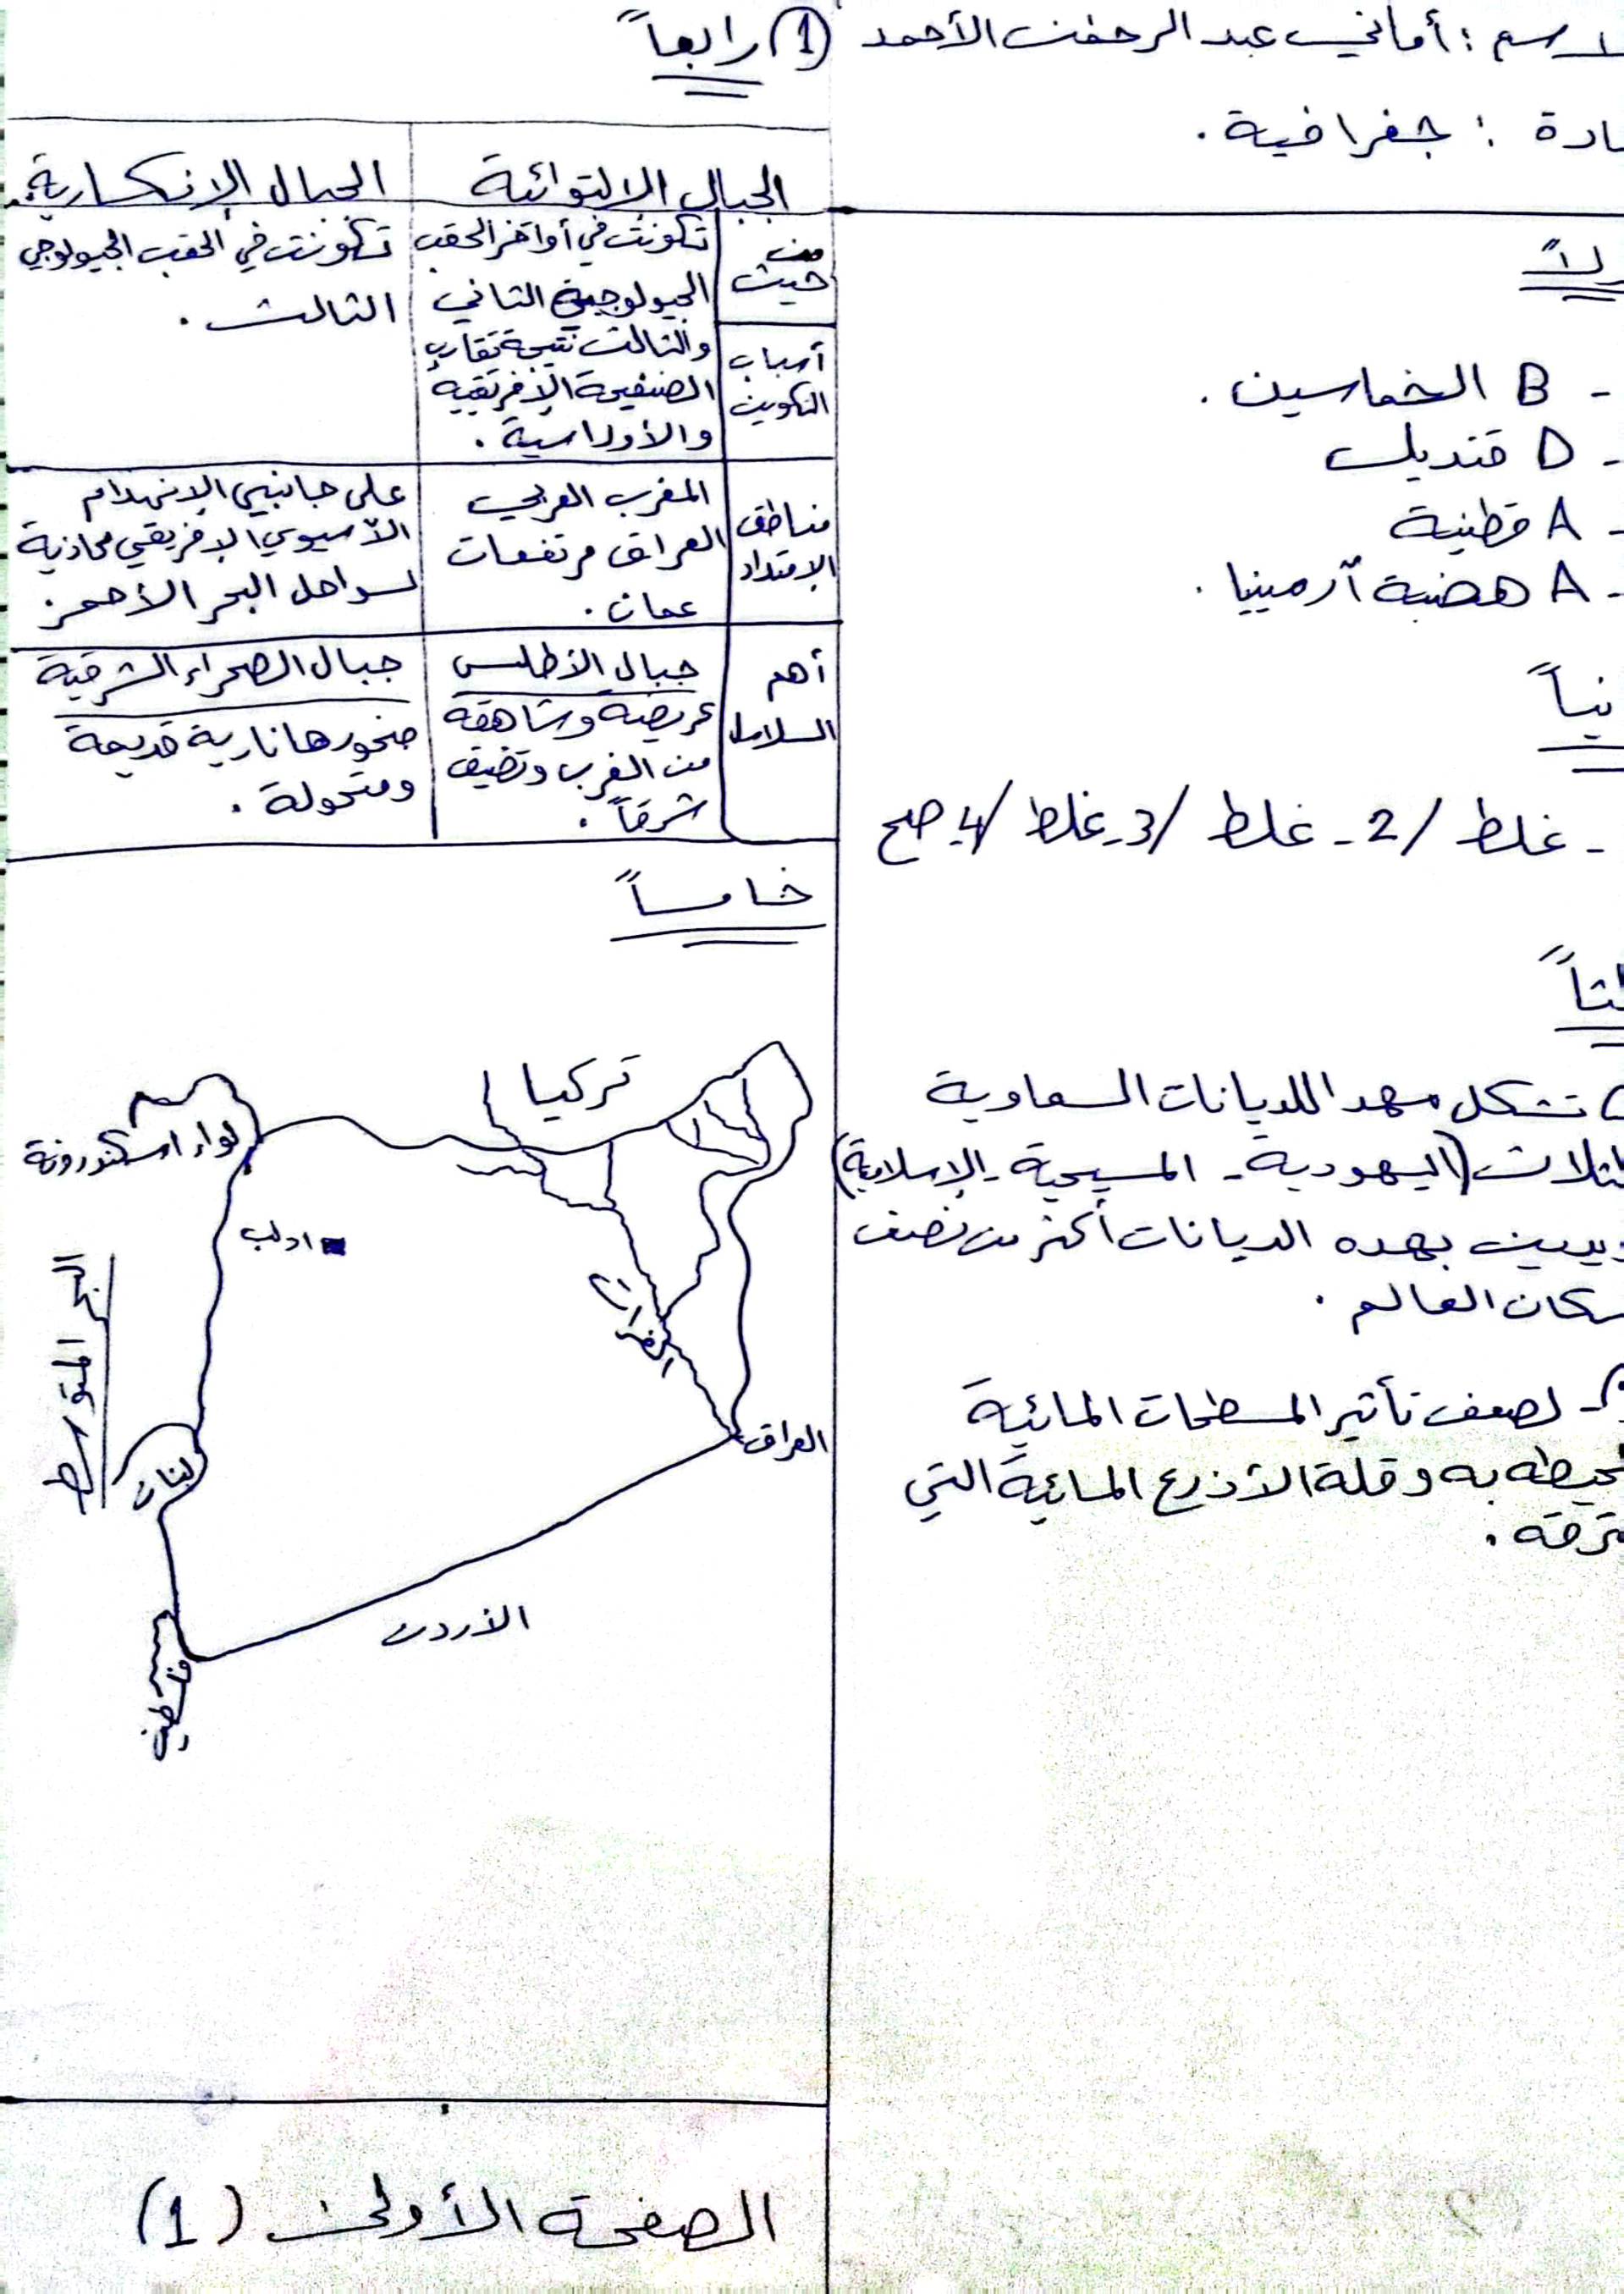 الاسم : أماني عبد الرحمن الأحمد
ادة : جغرافية .
ولاً
- B الخماسين .
- D قنديل
- A قطينة
- A هضبة أرمينيا .
نياً
- غلط / 2 - غلط / 3 - غلط / 4 صح
لثاً
تشكل مهد اللديانات السماوية
لثلاث (اليهودية - المسيحية - الإسلامية)
ويدين بهده الديانات أكثر من نصف
سكان العالم .
- لضعف تأثير المسطحات المائية
لمحيطه به وقلة الأذرع المائية التي
ترقه .
(1) رابعاً
الجبال الالتوائية
الجبال الإنكسارية
من حيث
أسباب التكوين
تكونت في أواخر الحقب
الجيولوجية الثاني
والثالث نتيجة تقارب
الصفيحة الإفريقية
والأوراسية .
تكونت في الحقب الجيولوجي
الثالث .
مناطق الإمتداد
المغرب العربي
العراق مرتفعات
عمان .
على جانبي الإنهدام
الآسيوي الإفريقي محاذية
لسواحل البحر الأحمر .
أهم السلاسل
جبال الأطلس
عريضة وشاهقة
من الغرب وتضيق
شرقاً .
جبال الصحراء الشرقية
صخورها نارية قديمة
ومتحولة .
خامساً
تركيا
لواء اسكندرونة
ادلب
البحر المتوسط
نهر الفرات
العراق
لبنان
الأردن
فلسطين
الصفحة الأولى (1)